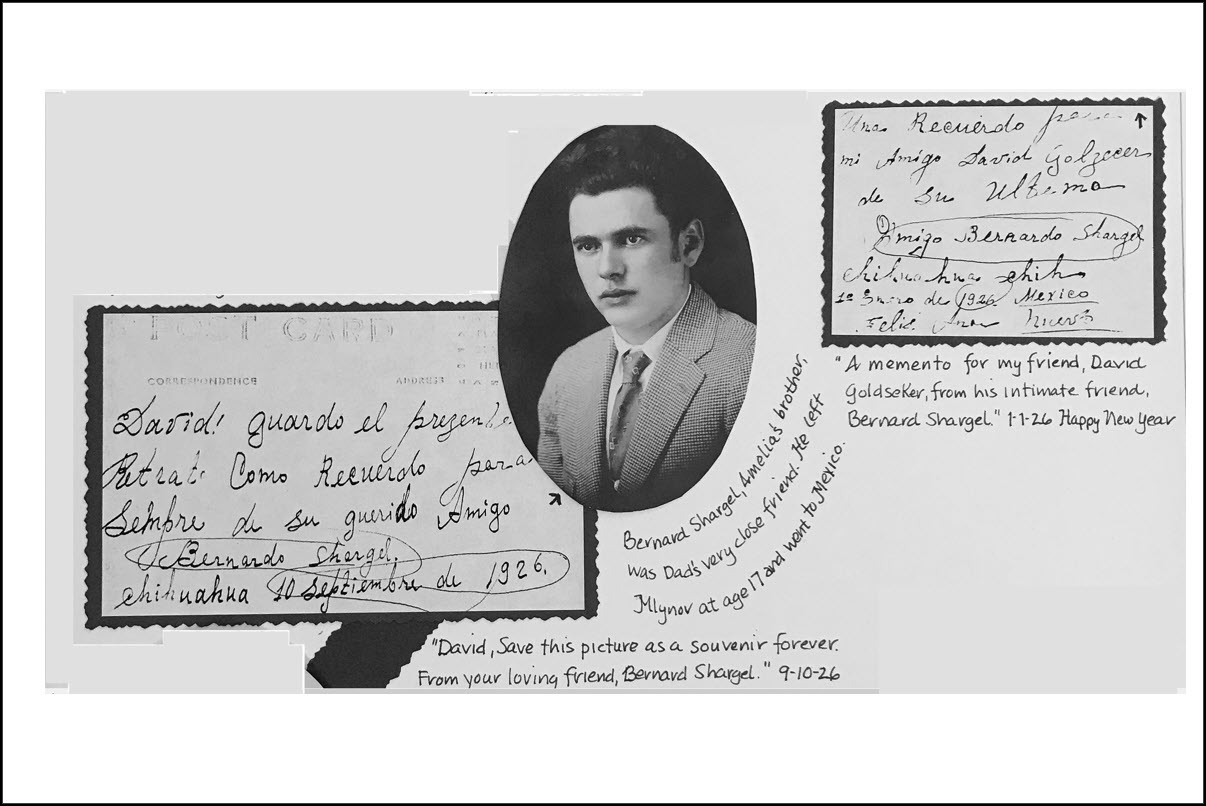 POST CARD
CORRESPONDENCE ADDRESS
David! guardo el prezente
Retrato Como Recuerdo para
Sempre de su querido Amigo
Bernardo Shargel.
chihuahua 10 septiembre de 1926.
Una Recuerdo para
mi Amigo David Golzecer
de su Ultema
Amigo Bernardo Shargel
chihuahua chih
1º Enero de 1926 Mexico
Feliz Ano Nuevo
"A memento for my friend, David
Goldseker, from his intimate friend,
Bernard Shargel." 1-1-26 Happy New Year
Bernard Shargel, Amelia's brother,
was Dad's very close friend. He left
Mlynov at age 17 and went to Mexico.
"David, Save this picture as a souvenir forever.
From your loving friend, Bernard Shargel." 9-10-26